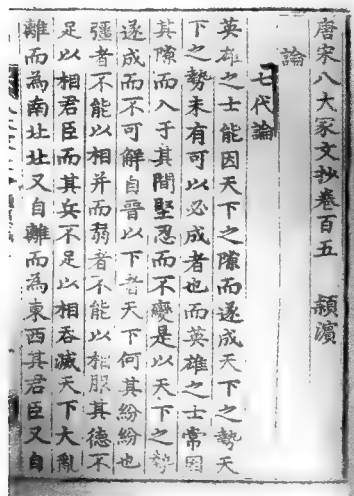 唐宋八大家文抄卷百五 頴濵
論
七代論
英雄之士能因天下之隙而遂成天下之勢天
下之勢未有可以必成者也而英雄之士常因
其隙而入于其間堅忍而不變是以天下之勢
遂成而不可解自晉以下者天下何其紛紛也
彊者不能以相并而弱者不能以相服其德不
足以相君臣而其兵不足以相吞滅天下大亂
離而為南北北又自離而為東西其君臣又自